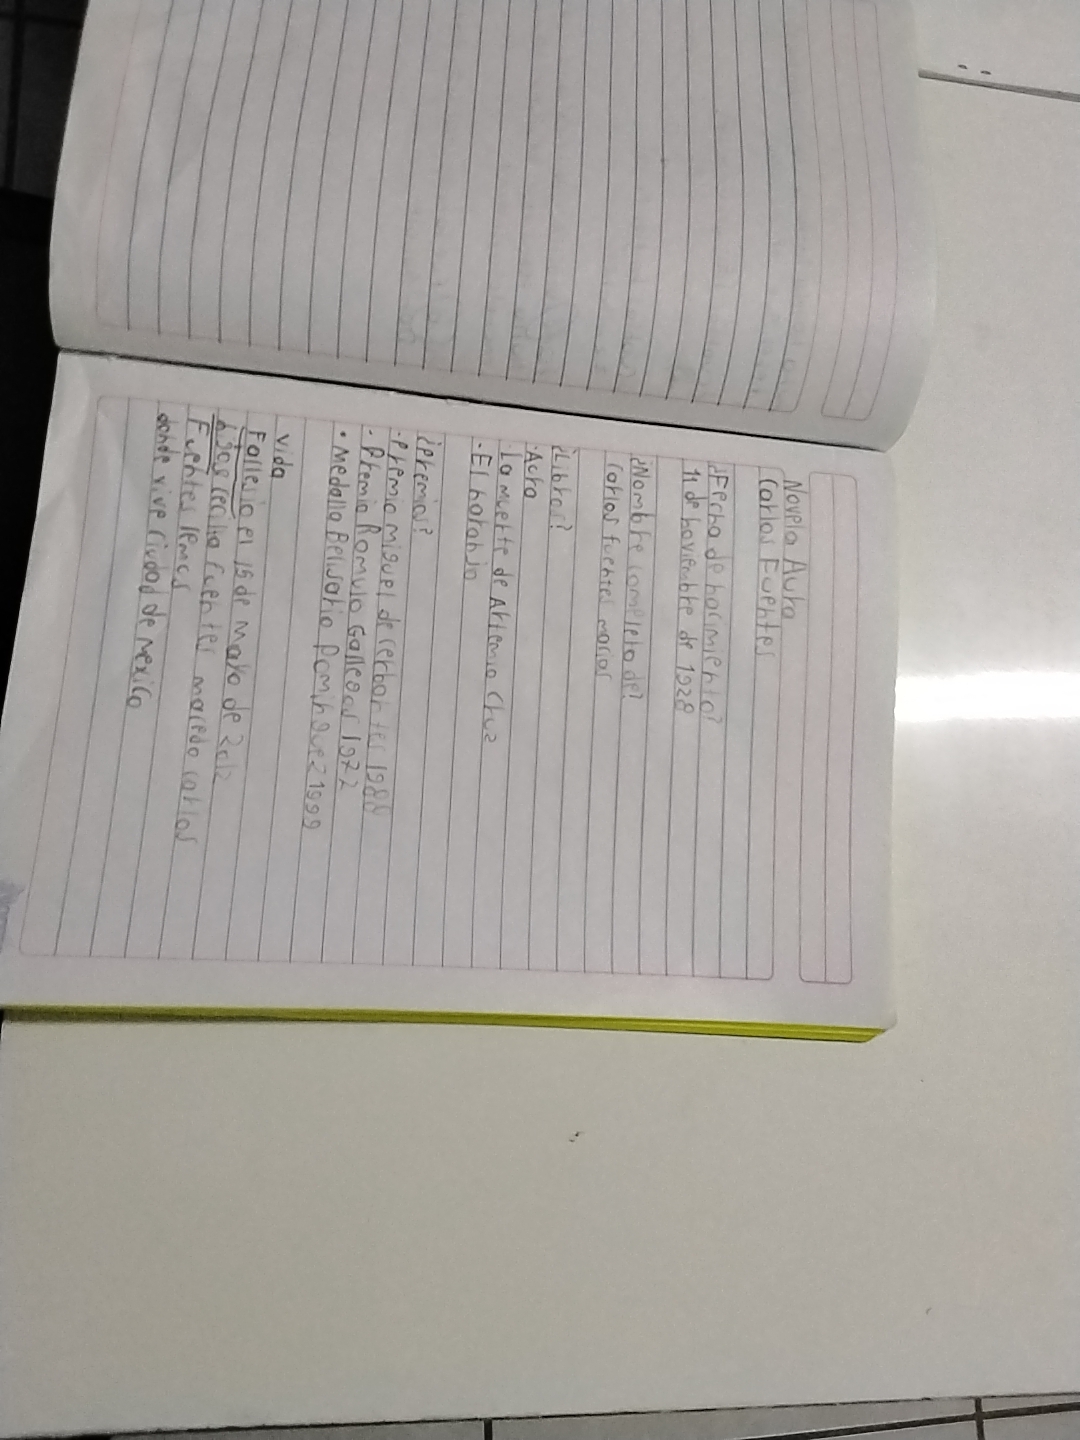 Novela Aura
Carlos Fuentes
¿Fecha de nacimiento?
11 de noviembre de 1928
¿Nombre completo de?
Carlos fuentes macias
¿Libros?
·Aura
·La muerte de Artemio Cruz
·El naranjo
¿Premios?
·Premio miguel de cerbantes 198
·Premio Romulo Gallegos 1977
·Medalla Belisario Domihguez 1999
Vida
Fallesio el 15 de mayo de 2012
hijos cecilia fuentes macedo carlos
Fuentes lemus
donde vive ciudad de mexico